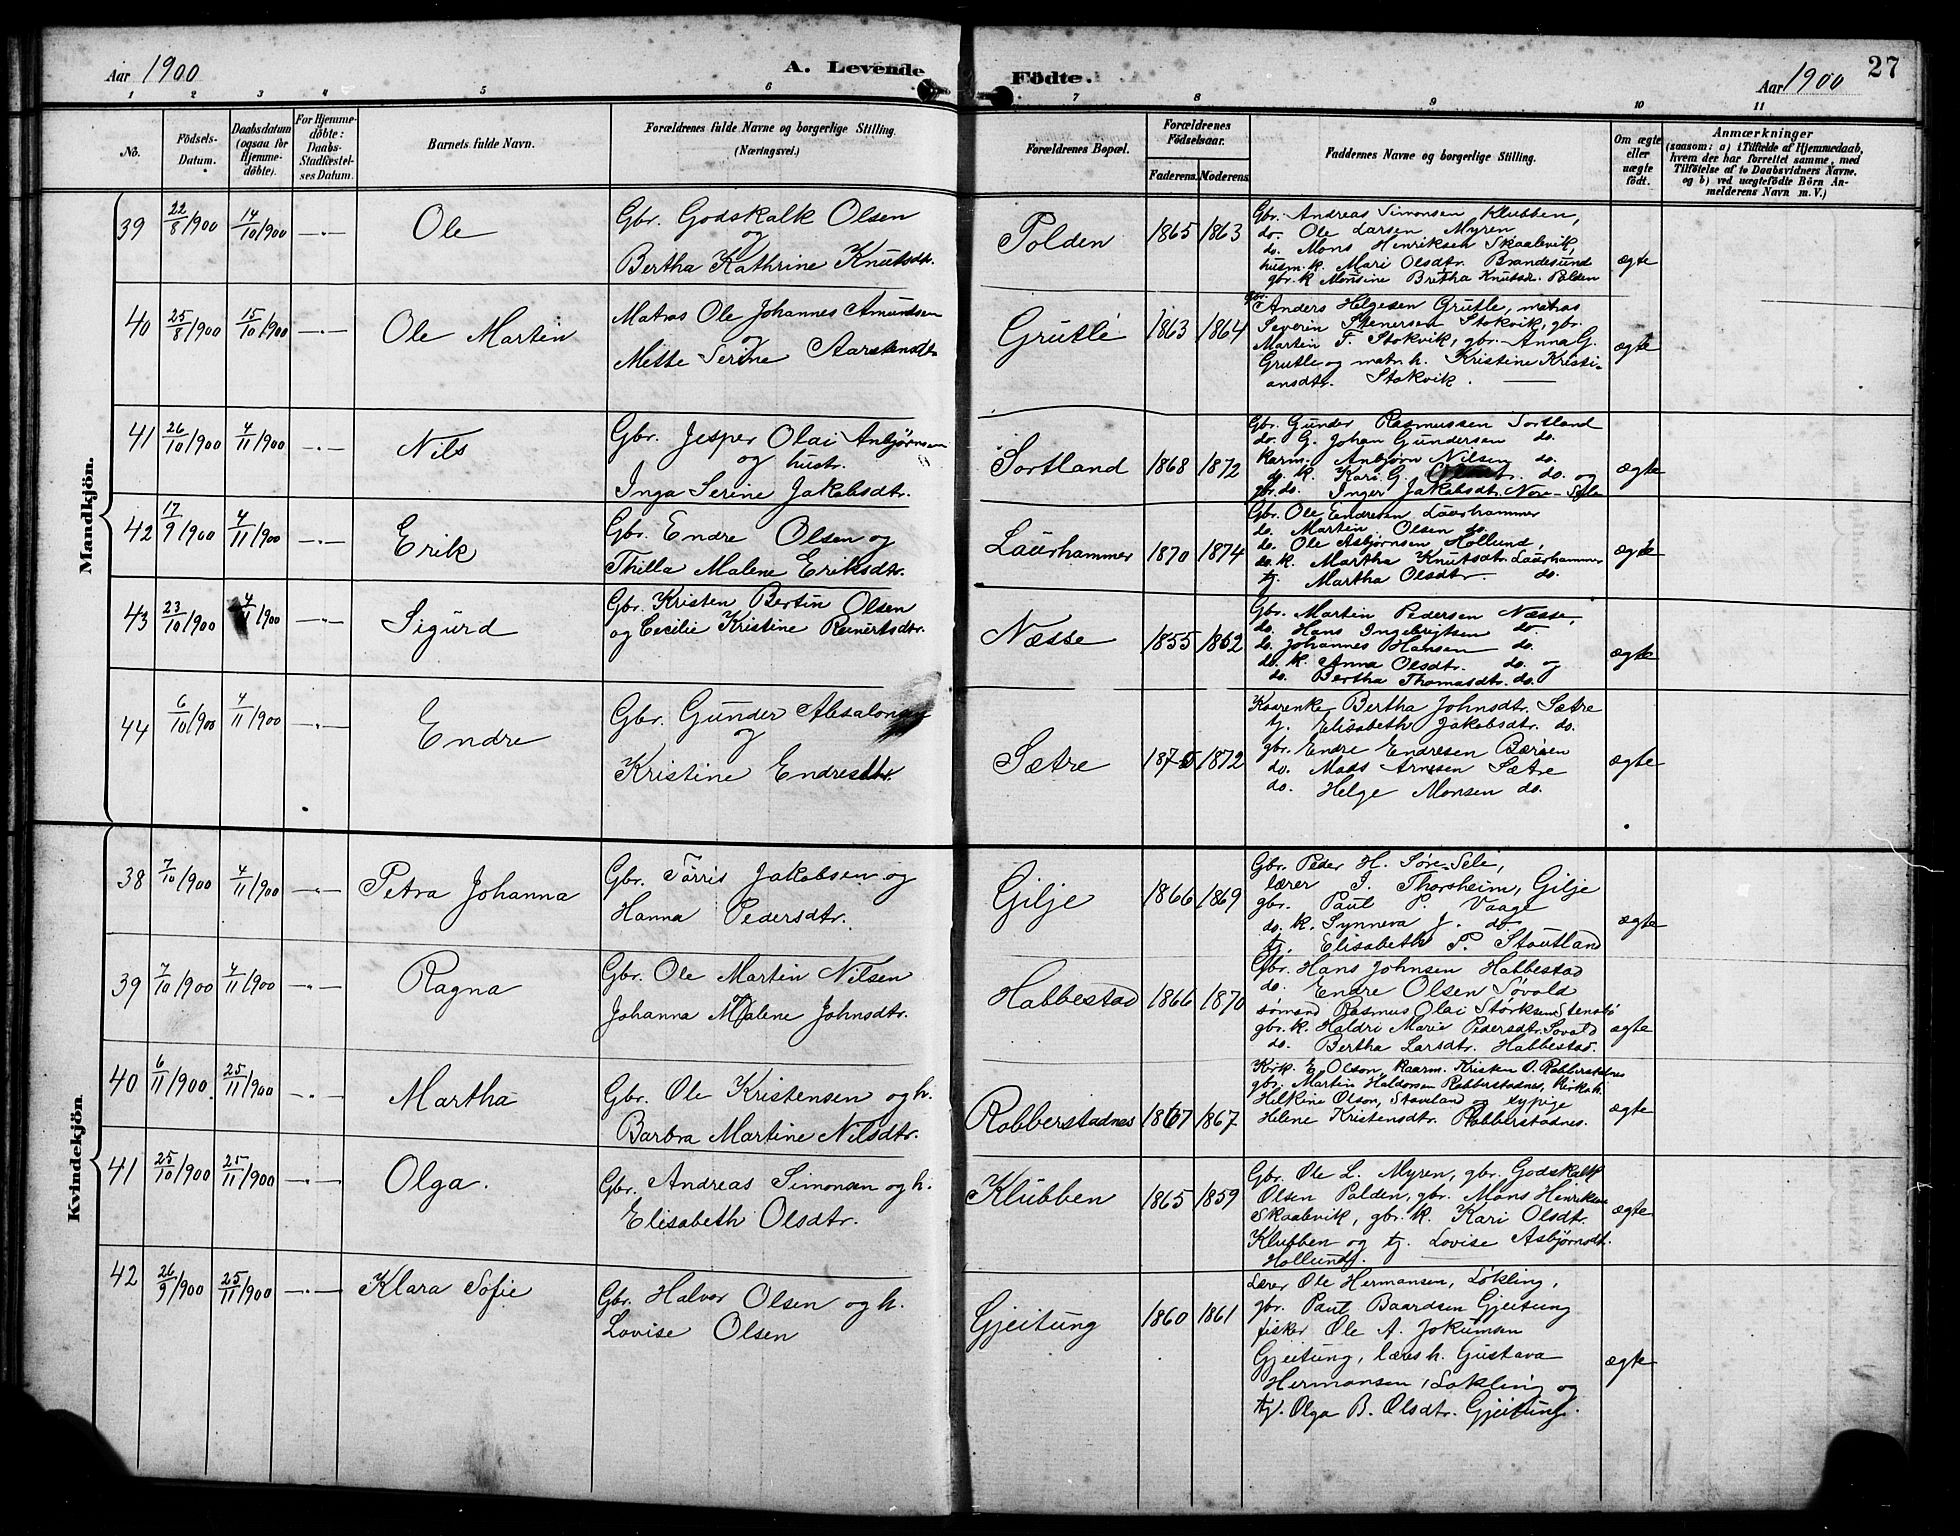 Aar 1900
A. Levende
Födte.
Aar 1900
27
1 2 3 4 5 6 7 8 9 10 11
No.
Födsels-Datum.
Daabsdatum (ogsaa for Hjemme-döbte).
For Hjemme-döbte: Daabs-Stadfæstel-ses Datum.
Barnets fulde Navn.
Forældrenes fulde Navne og borgerlige Stilling.
(Næringsvei.)
Forældrenes Bopæl.
Forældrenes Födselsaar.
Faderens. Moderens.
Faddernes Navne og borgerlige Stilling.
Om ægte eller uægte födt.
Anmærkninger
(saasom: a) i Tilfælde af Hjemmedaab,
hvem der har forrettet samme, med
Tilföielse af to Daabsvidners Navne.
og b) ved uægtefödte Börn An-
melderens Navn m. V.)
Mandkjön.
39 22/8 1900 14/10 1900 -"- Ole
Gbr. Godskalk Olsen
og
Bertha Kathrine Knutsdtr.
Polden 1865 1863
Gbr. Andreas Simonsen Klubben,
do. Ole Larsen Myren
do. Mons Henriksen Skaalevik
husm. k. Mari Olsdtr. Brandesund
gbr. k. Monsine Bertha Knutsd. Polden
ægte
40 25/8 1900 15/10 1900 -"- Ole Martin
Matros Ole Johannes Amundsen
og
Mette Serine Aarstensdtr.
Grutle 1863 1864
gbr. Anders Helgesen Grutle, matros
Severin Stenersen Stokvik, gbr.
Martin F. Stokvik, gbr. Anna G.
Grutle og matr. h. Kristine Kristi-
ansdtr. Stokvik.
ægte
41 26/10 1900 4/11 1900 -"- Nils
Gbr. Jesper Olai Anbjørnsen
og hustr.
Inga Serine Jakobsdtr.
Sortland 1868 1872
Gbr. Gunder Rasmussen Sortland
do. G. Johan Gundersen do.
karm. Anbjørn Nilsen do.
do. k. Kari G. do. og
gbr. do. Inger Jakobsdtr. Nore-Sele
ægte
42 17/9 1900 4/11 1900 -"- Erik
Gbr. Endre Olsen og
Thilla Malene Eriksdtr.
Laurhammer 1870 1874
Gbr. Ole Endresen Laurhammer
do. Martin Olsen do.
do. Ole Asbjørnsen Hollund,
do. k. Martha Knutsdtr. Laurhammer
tj. Martha Olsdtr. do.
ægte
43 23/10 1900 4/11 1900 -"- Sigurd
Gbr. Kristen Bertin Olsen
og Cecilie Kristine Reinertsdtr.
Næsse 1855 1862
Gbr. Martin Pedersen Næsse,
do. Hans Ingebrigtsen do.
do. Johannes Hansen do.
do. k. Anna Olsdtr. do. og
do. Bertha Thomasdtr. do.
ægte
44 6/10 1900 4/11 1900 -"- Endre
Gbr. Gunder Absalonsen
og
Kristine Endresdtr.
Sætre 1870 1872
Kaarenke Bertha Johnsdtr. Sætre
tj. Elisabeth Jakobsdtr. do.
gbr. Endre Endresen Børøen
do. Mads Arnesen Sætre
do. Helge Monsen do.
ægte
Kvindekjön.
38 7/10 1900 4/11 1900 -"- Petra Johanna
Gbr. Tørris Jakobsen og
Hanna Pedersdtr.
Gilje 1866 1869
Gbr. Peder H. Søre-Sele,
lærer I. Thorsheim, Gilje
gbr. Paul P. Vaage
do. k. Synneva J. do
tj. Elisabeth P. Stoutland
ægte
39 7/10 1900 4/11 1900 -"- Ragna
Gbr. Ole Martin Nilsen
Johanna Malene Johnsdtr.
Habbestad 1866 1870
Gbr. Hans Johnsen Habbestad
do. Endre Olsen Søvold
sømand Rasmus Olai Størksen Stensbø
gbr. k. Haldri Marie Pedersdtr. Sovold
do. Bertha Larsdtr. Habbestad.
ægte
40 6/11 1900 25/11 1900 -"- Martha
Gbr. Ole Kristensen og h.
Barbra Martine Nilsdtr.
Robberstadnes 1867 1867
Kirk. E. Olson, kaarm. Kristen O. Robberstadnes
gbr. Martin Haldorsen Robberstadnes, kirkeh.
Helkine Olson, Staveland og sypige
Helene Kristensdtr. Robberstadnes.
ægte
41 25/10 1900 25/11 1900 -"- Olga.
Gbr. Andreas Simonsen og h.
Elisabeth Olsdtr.
Klubben 1865 1859
Gbr. Ole L. Myren, gbr. Godskalk
Olsen Polden, gbr. Mons Henriksen
Skaalevik, gbr. k. Kari Olsdtr.
Klubben og tj. Lovise Asbjørnsdt.
Hollund.
ægte
42 26/9 1900 25/11 1900 -"- Klara Sofie
Gbr. Halvor Olsen og h.
Lovise Olsen
Gjeitung 1860 1861
Lærer Ole Hermansen, Løkling,
gbr. Paul Baardsen Gjeitung
fisker Ole A. Jokumsen
Gjeitung, læresh. Gustava
Hermansen, Løkling og
tj. Olga B. Olsdtr. Gjeitung.
ægte